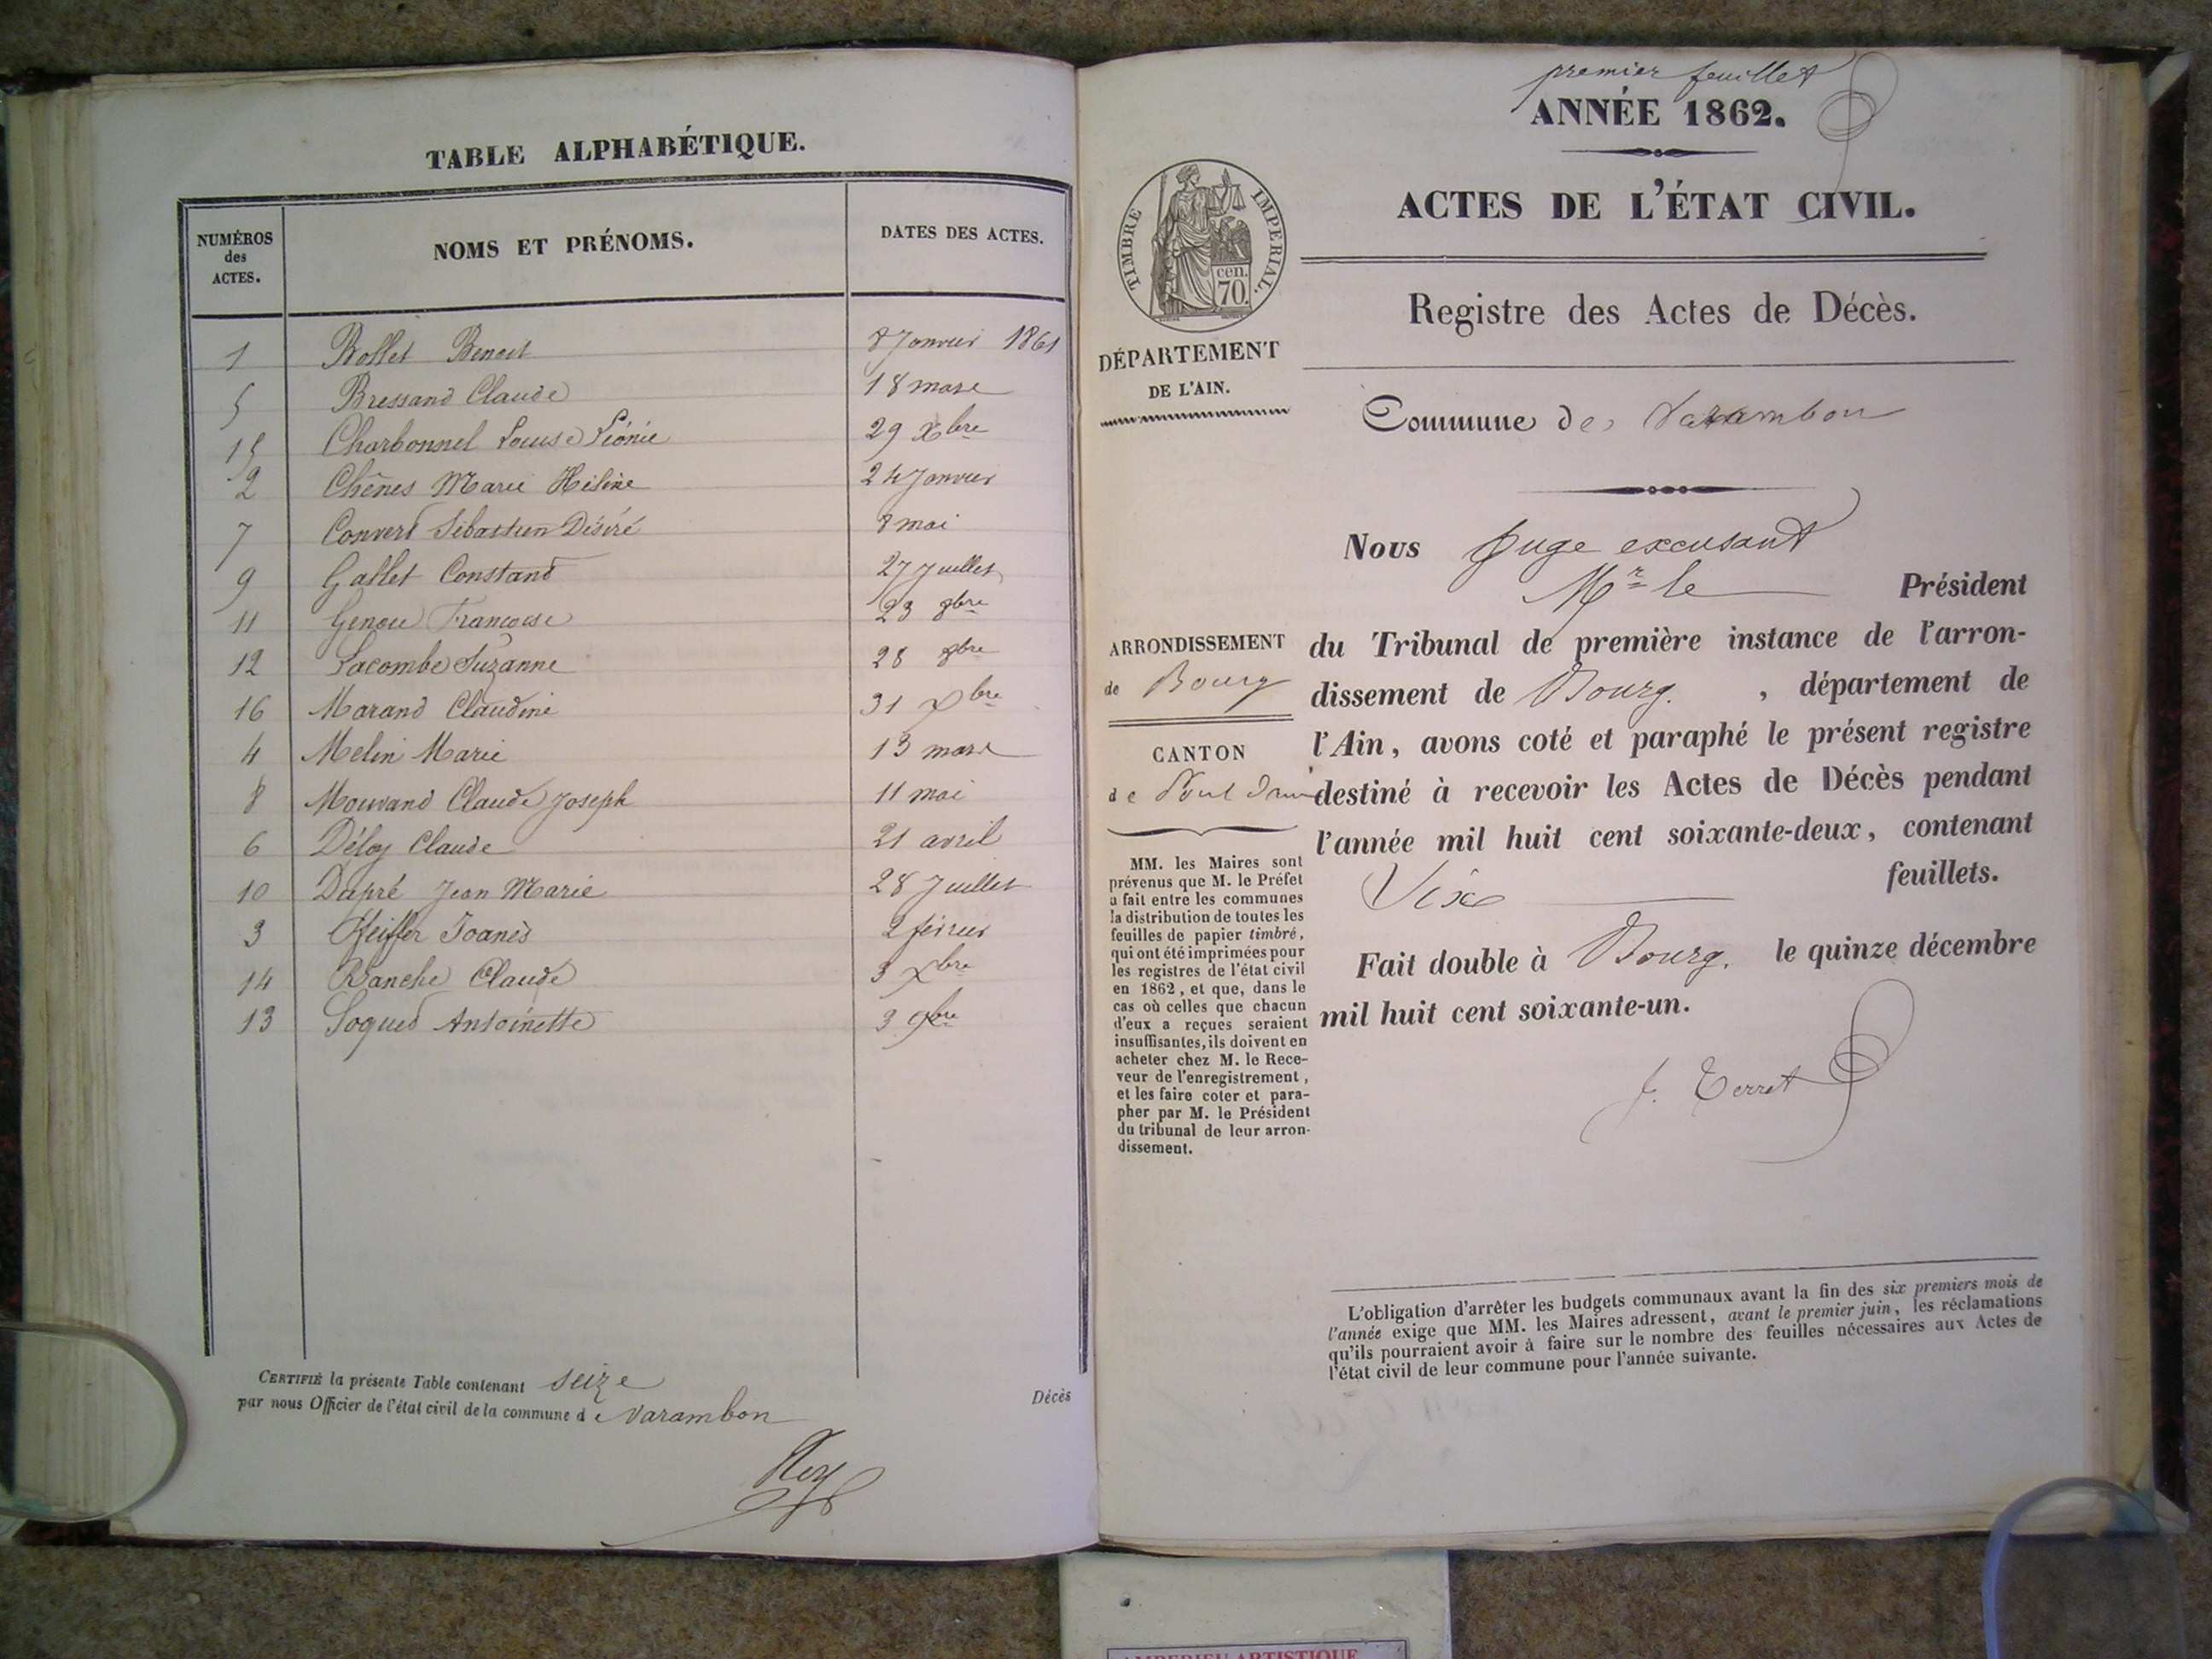 TABLE ALPHABÉTIQUE.
NUMÉROS des ACTES. NOMS ET PRÉNOMS. DATES DES ACTES.
1 Bollet Benoit 8 Janvier 1861
5 Bressand Claude 18 mars
15 Charbonnel Louise Léonie 29 Xbre
2 Chênes Marie Hélène 24 Janvier
7 Convert Sébastien Désiré 8 mai
9 Gallet Constand 27 Juillet
11 Genou Francoise 23 8bre
12 Lacombe Suzanne 28 8bre
16 Morand Claudine 31 Xbre
4 Melin Marie 13 mars
8 Mouvand Claude Joseph 11 mai
6 Claude 21 avril
10 Dupré Jean Marie 28 Juillet
3 Pfeiffer Joanès 2 février
14 Ranche Claude 3 Xbre
13 Soqued Antoinette 3 9bre
CERTIFIÉ la présente Table contenant seize Décès
par nous Officier de l'état civil de la commune de Varambon
premier feuillet
ANNÉE 1862.
ACTES DE L'ÉTAT CIVIL.
TIMBRE IMPERIAL.
cen.
70.
Registre des Actes de Décès.
DÉPARTEMENT
DE L'AIN.
Commune de Varambon
Nous Juge excusant
Mr le Président
du Tribunal de première instance de l'arron-
dissement de Bourg. , département de
l'Ain, avons coté et paraphé le présent registre
destiné à recevoir les Actes de Décès pendant
l'année mil huit cent soixante-deux, contenant
Six feuillets.
Fait double à Bourg. le quinze décembre
mil huit cent soixante-un.
J. Terret
ARRONDISSEMENT
de Bourg
CANTON
de Pont d'ain
MM. les Maires sont
prévenus que M. le Préfet
a fait entre les communes
la distribution de toutes les
feuilles de papier timbré,
qui ont été imprimées pour
les registres de l'état civil
en 1862, et que, dans le
cas où celles que chacun
d'eux a reçues seraient
insuffisantes, ils doivent en
acheter chez M. le Rece-
veur de l'enregistrement,
et les faire coter et para-
pher par M. le Président
du tribunal de leur arron-
dissement.
L'obligation d'arrêter les budgets communaux avant la fin des six premiers mois de
l'année exige que MM. les Maires adressent, avant le premier juin, les réclamations
qu'ils pourraient avoir à faire sur le nombre des feuilles nécessaires aux Actes de
l'état civil de leur commune pour l'année suivante.
AMBERIEU ARTISTIQUE